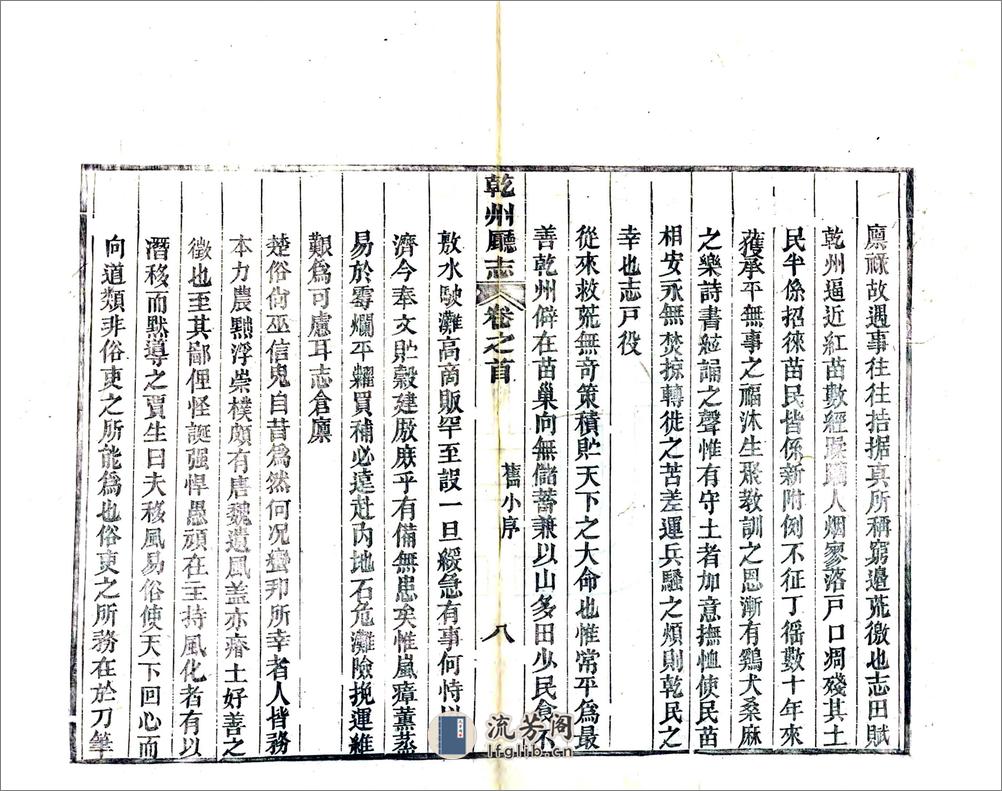 廪祿故遇事往往拮据真所稱窮邊荒徼也志田賦
乾州逼近紅苗數經蹂躪人烟寥落戸口凋殘其土
民半係招徠苗民皆係新附例不征丁徭數十年來
獲承平無事之福沐生聚教訓之恩漸有鷄犬桑麻
之樂詩書絃誦之聲惟有守土者加意撫恤使民苗
相安永無焚掠轉徙之苦差運兵騷之煩則乾民之
幸也志戸役
從來救荒無竒策積貯天下之大命也惟常平爲最
善乾州僻在苗巢向無儲蓄兼以山多田少民食不
乾州廳志
卷之首
舊小序
八
敷水駛灘高商販罕至設一旦緩急有事何恃以
濟今奉文貯穀建厫庶乎有備無患矣惟嵐瘴薰蒸
易於霉爛平糶買補必遠赴內地石危灘險挽運維
艱爲可慮耳志倉廪
楚俗尚巫信鬼自昔爲然何况蠻邦所幸者人皆務
本力農黜浮崇樸頗有唐魏遺風盖亦瘠土好善之
徵也至其鄙俚怪誕强悍愚頑在主持風化者有以
潛移而默導之賈生曰夫移風易俗使天下回心而
向道類非俗吏之所能爲也俗吏之所務在於刀筆
流芳阁
lfglib.cn